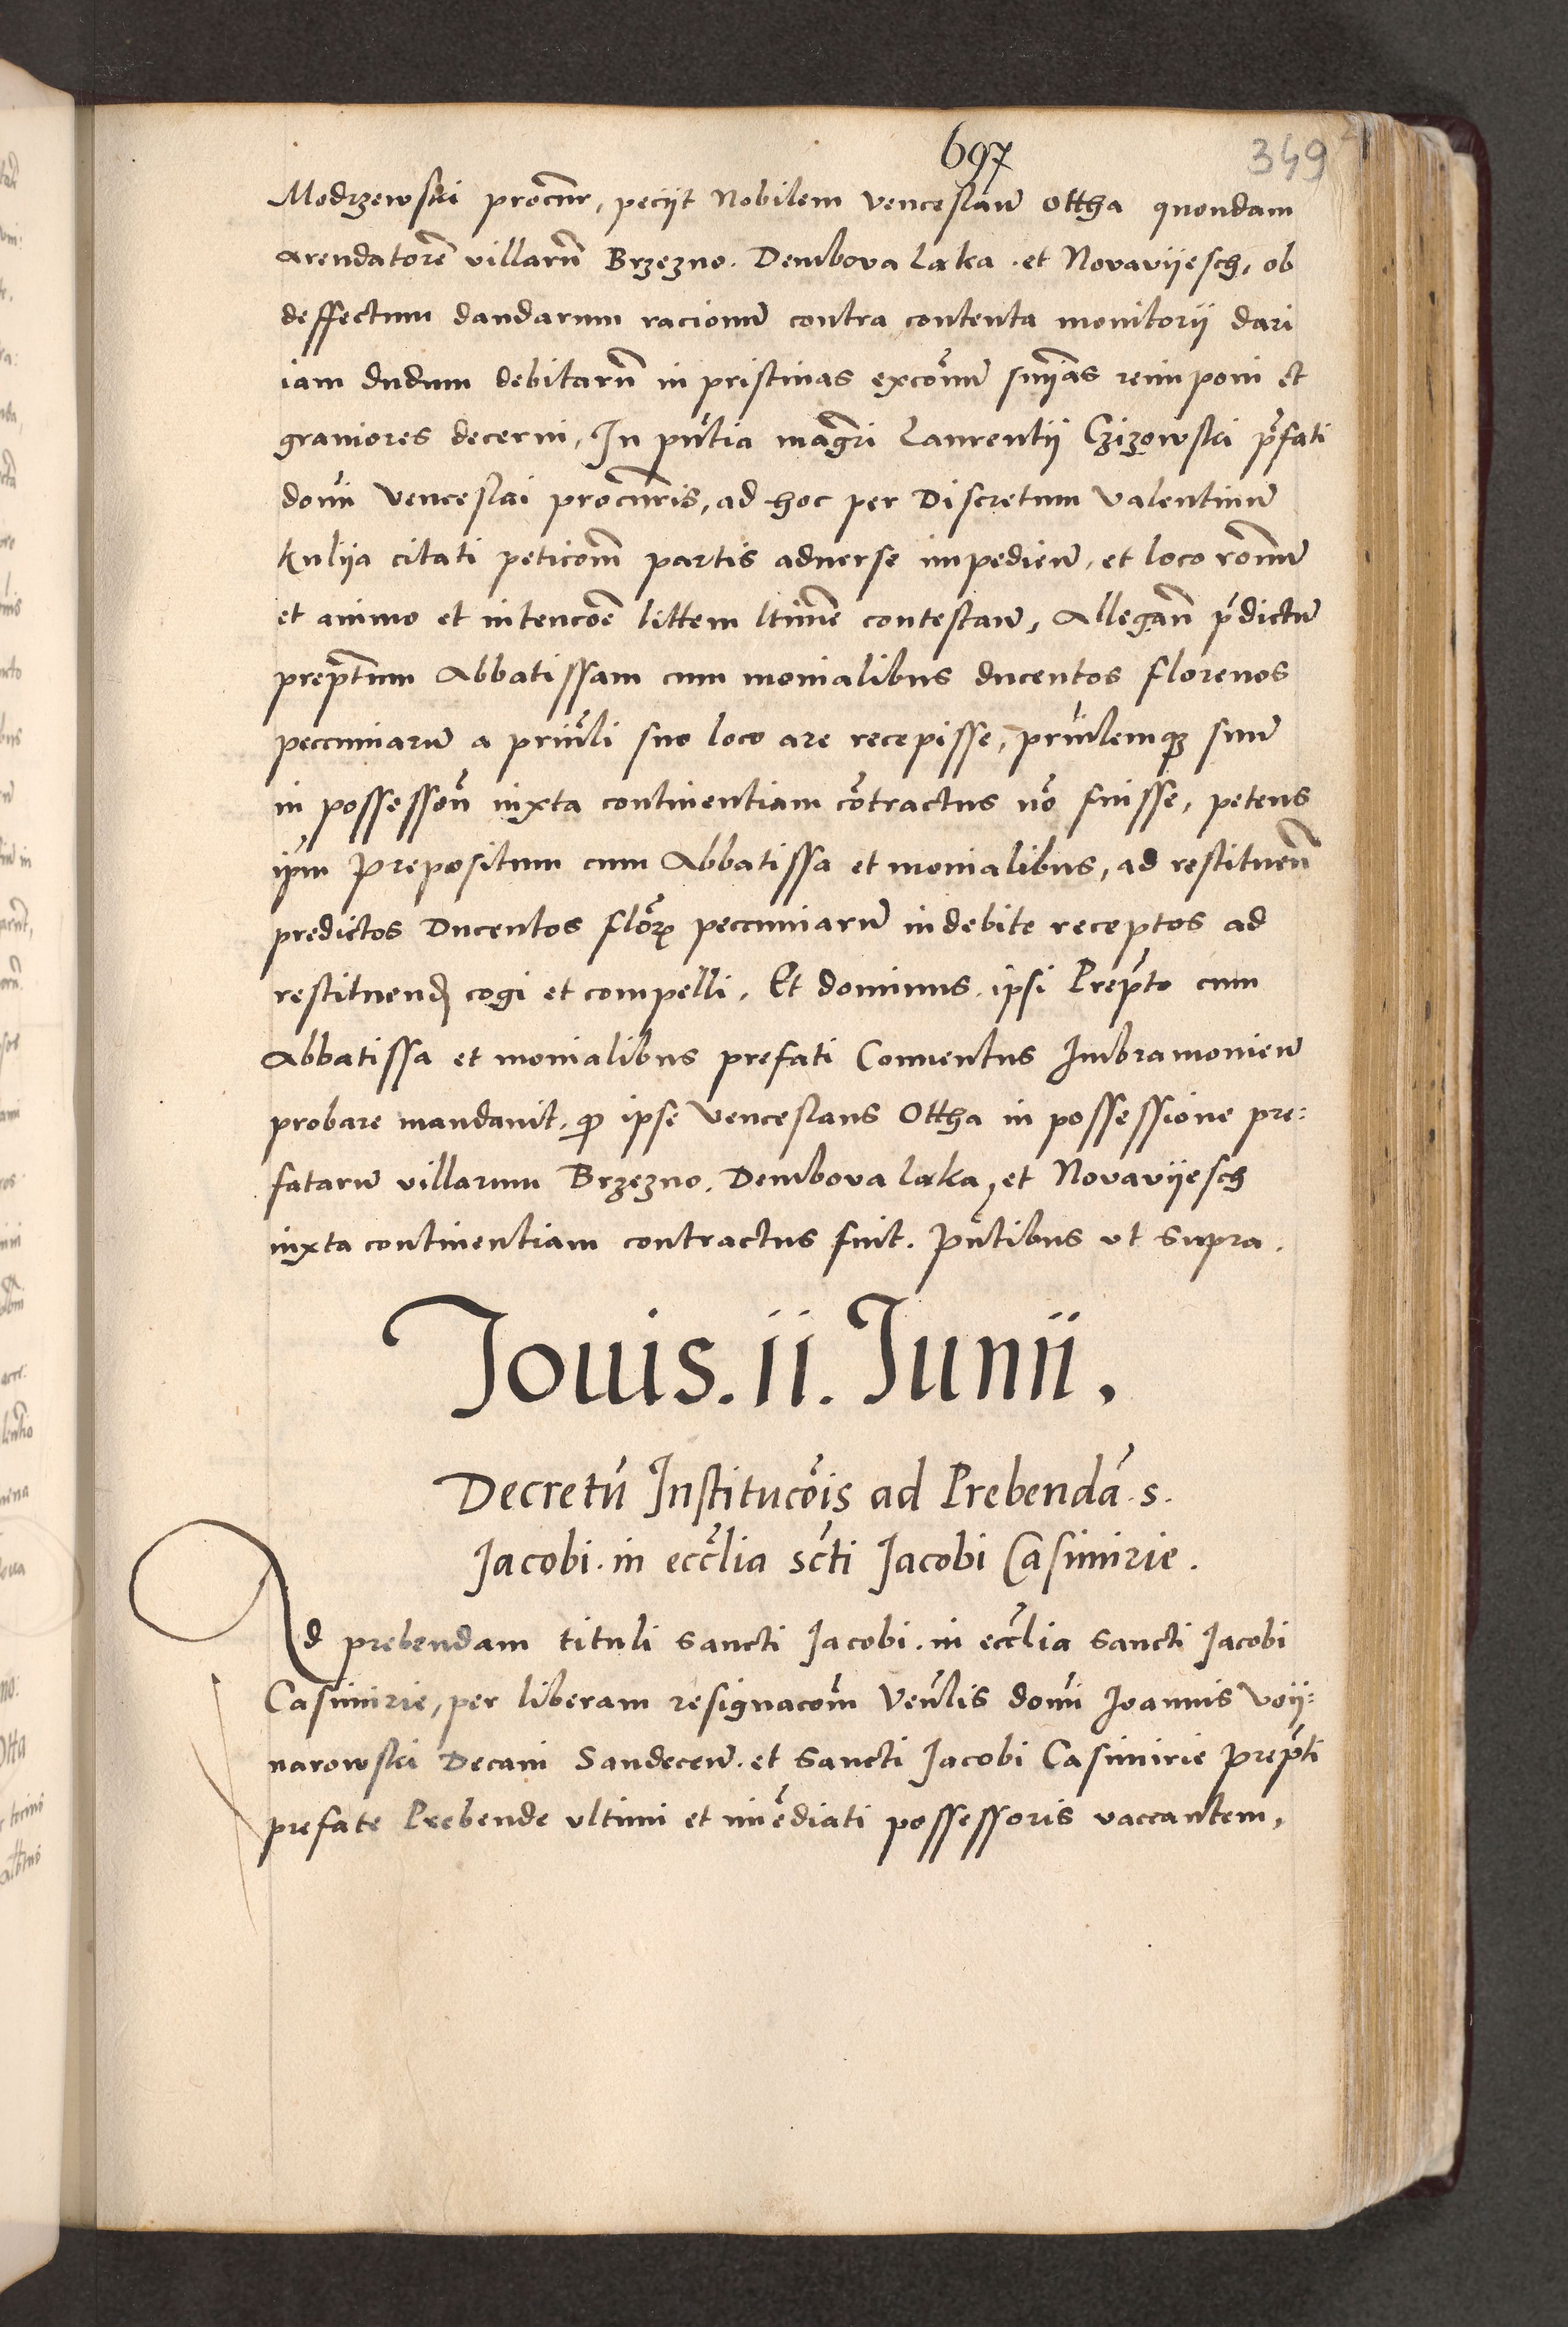 697
349
Modrzewski procur̃, peciit Nobilem Venceslaũ Ottha quondam
arendatorẽ villarũ Brzezno. Dembova laka. et Novavijesch, ob
deffectum dandarum racionũ contra contenta monitorij dari
iam dudum debitarũ in pristinas excõnũ snĩas reimponi et
graviores decerni, In pñtia mag̃ri Laurentij Czizowski p̃fati
dom̃i Venceslai procuris, ad hoc per Discretum Valentinũ
Kulija citati peticom̃ partis adverse impedieñ, et loco rõnũ
et animo et intencõe littem ltim̃e contestañ, Allegañ p̃dictũ
prep̃tum Abbatissam cum monialibus ducentos florenos
peccuniarũ a prin̄li suo loco are recepisse, prin̄lemq₃ suũ
in possessioñ iuxta continentiam cõtractus nõ fuisse, petens
ip̃m Prepositum cum Abbatissa et monialibus, ad restitueñ
predictos Ducentos flõrꝝ peccuniarũ indebite receptos ad
restituend̃ cogi et compelli. Et dominus ipsi Prep̃to cum
Abbatissa et monialibus prefati Conventus Imbramonieñ
probare mandavit, qp ipse Venceslaus Ottha in possessione pre:
fatarũ villarum Brzezno. Dembova laka, et Novavijesch
iuxta continentiam contractus fuit. Pñtibus vt supra.
Jouis. ii. Junii.
Decretũ Institucõis ad Prebendã. s.
Jacobi. in eccl̃ia sc̃ti Jacobi Casimirie.
Ad prebendam tituli Sancti Jacobi. in eccl̃ia Sancti Jacobi
Casimirie, per liberam resignacom̃ Ven̄lis dom̃i Joannis Voij:
narowski Decani Sandeceñ. et Sancti Jacobi Casimirie Prep̃ti
prefate Prebende vltimi et im̃ediati possessoris vaccantem,